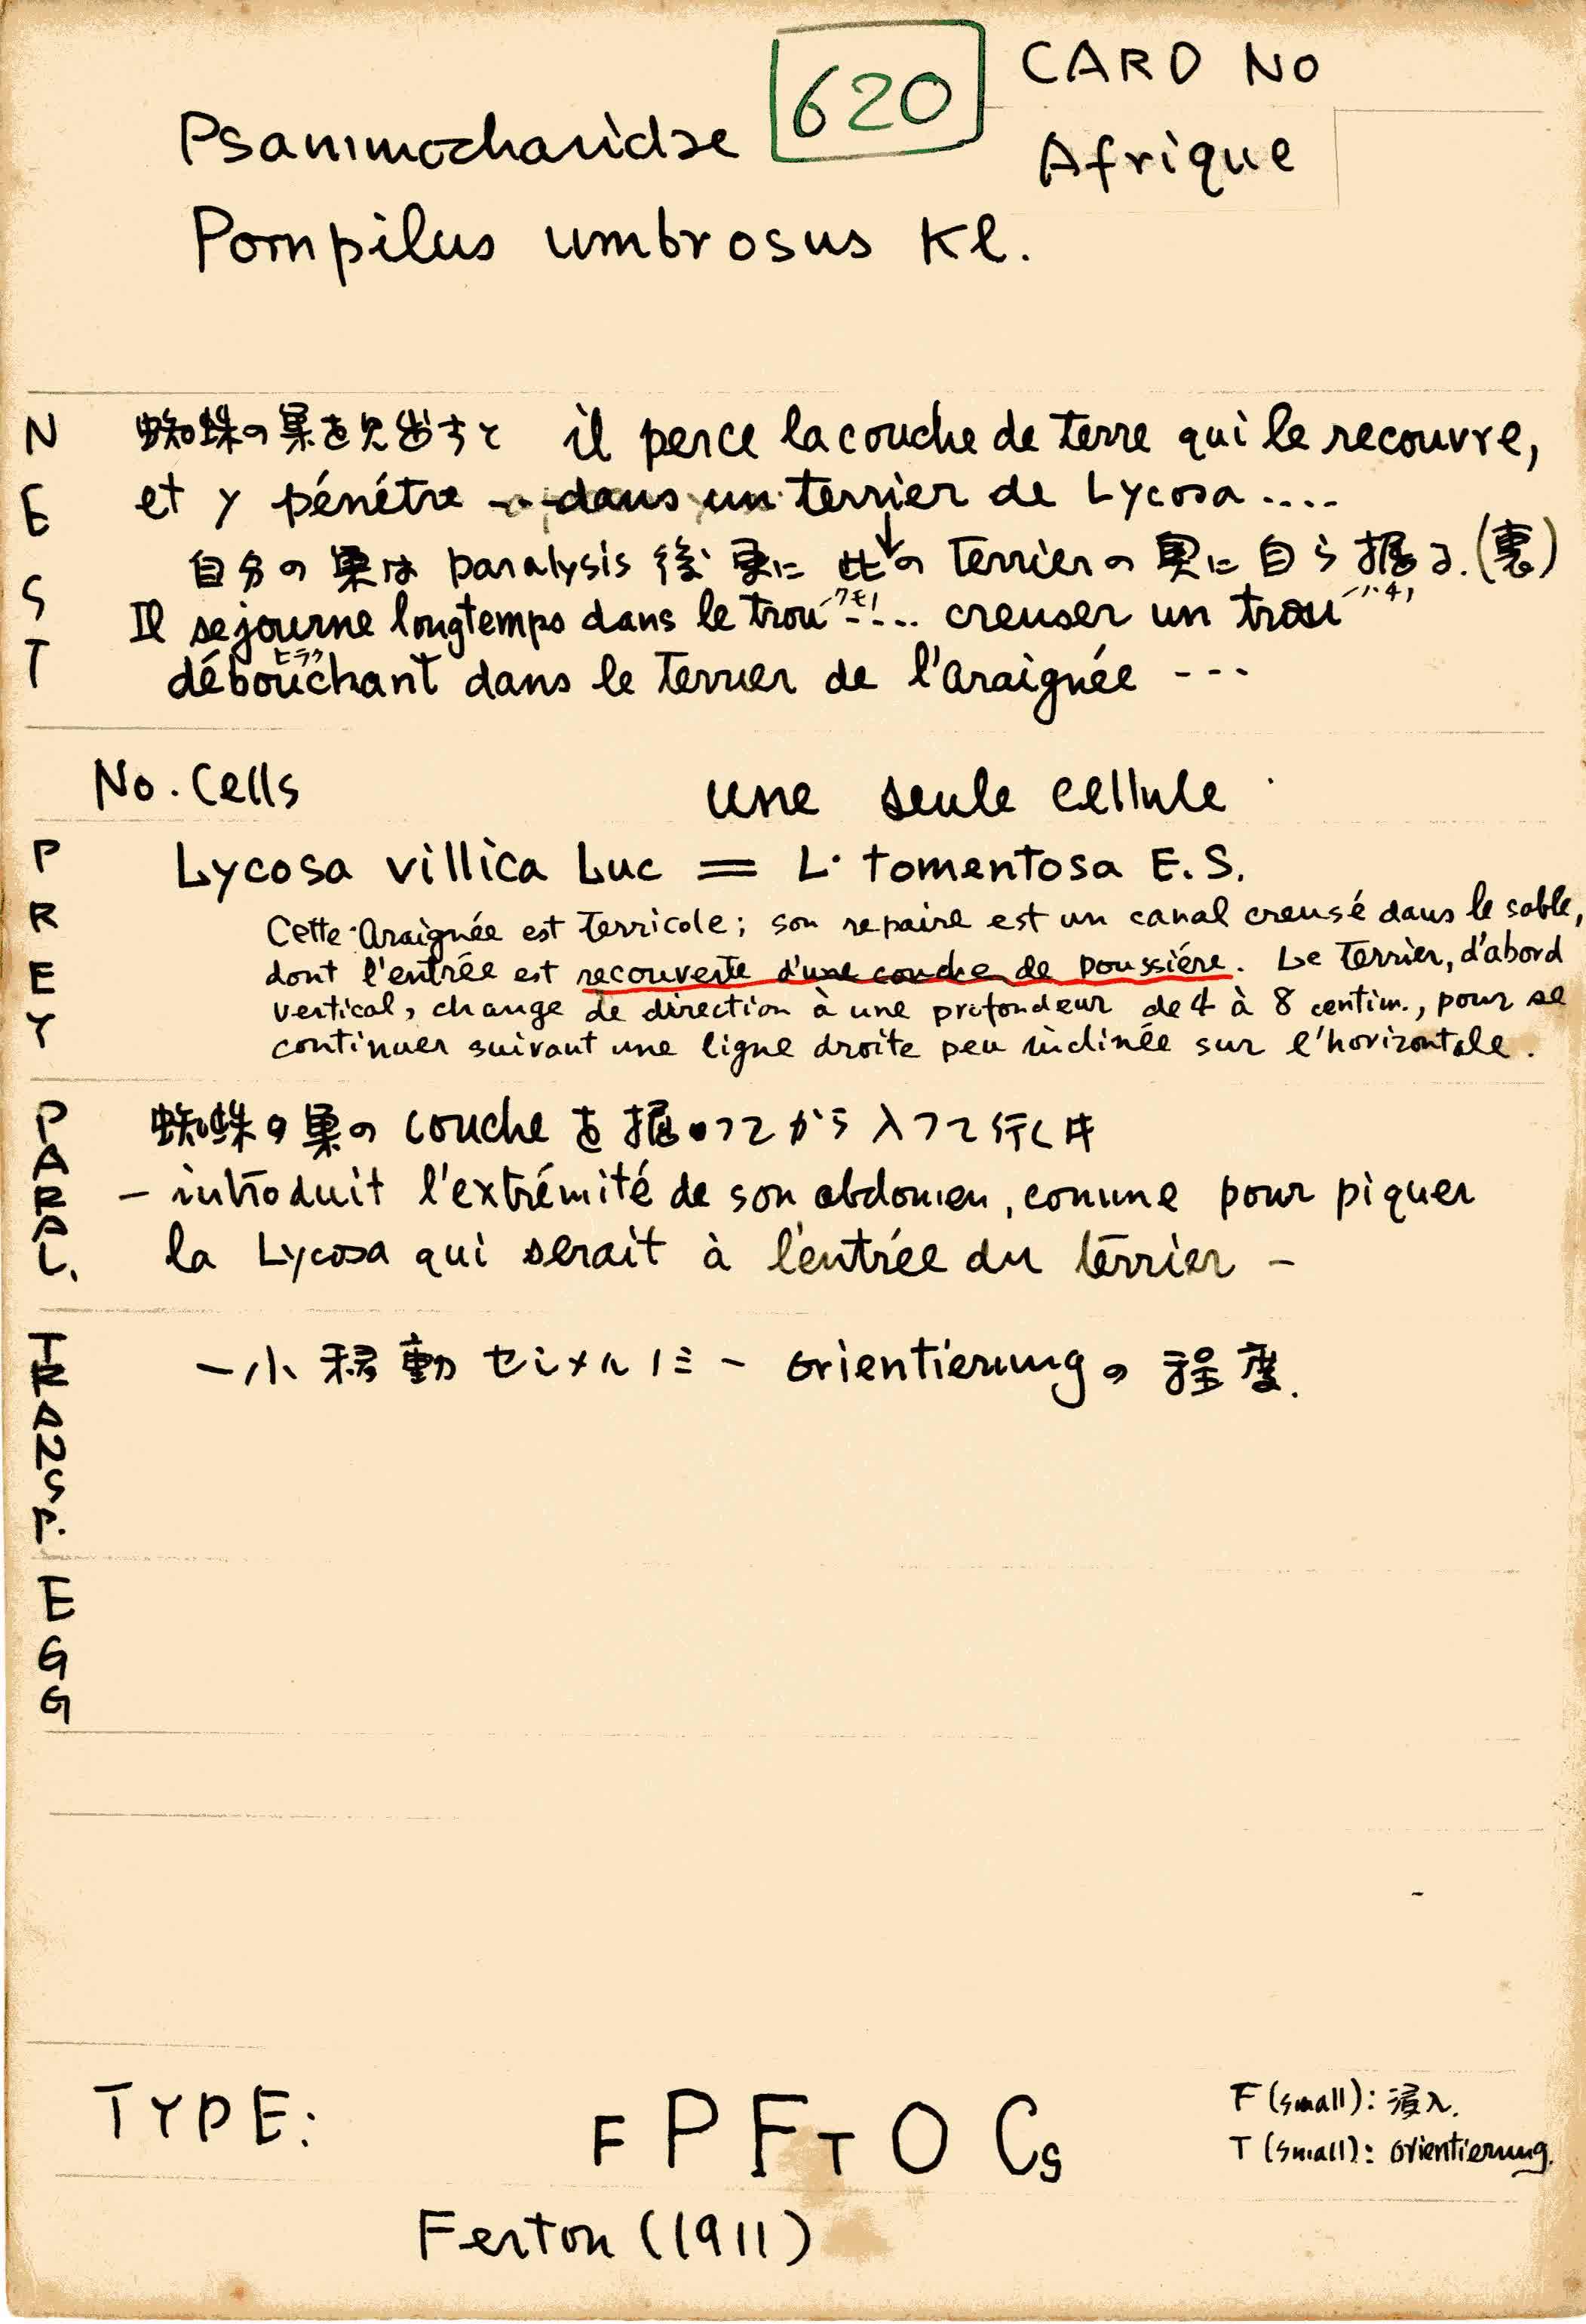 620
CARD No
Psammocharidae
Afrique
Pompilus umbrosus Kl.
NEST
蜘蛛の巣を見出すと il perce la couche de terre qui le recouvre,
et y pénétre --- dans un terrier de Lycosa ....
自分の巣は paralysis 後 更に 此の terrierの奥に自ら掘る.(裏)
Il sejourne longtemps dans le trou クモ! ... creuser un trou ハチ!
débouchant ヒラク dans le terrier de l'araignée ---
No. Cells une seule cellule
PREY
Lycosa villica Luc = L. tomentosa E.S.
Cette Araignée est terricole; son repaire est un canal creusé dans le sable,
dont l'entrée est recouverte d'une couche de poussiére. Le terrier, d'abord
vertical, change de direction à une profondeur de 4 à 8 centim., pour se
continuer suivant une ligne droite peu inclinée sur l'horizontale.
PARAL.
蜘蛛の巣の couche を掘ってから入って行く时
- introduit l'extrémité de son abdomen, comme pour piquer
la Lycosa qui serait à l'entrée du terrier -
TRANSP.
-小移動セシメルノミ- orientierungの程度.
EGG
TYPE: F P F T O Cs
F (small): 浸入.
T (small): orientierung.
Ferton (1911)